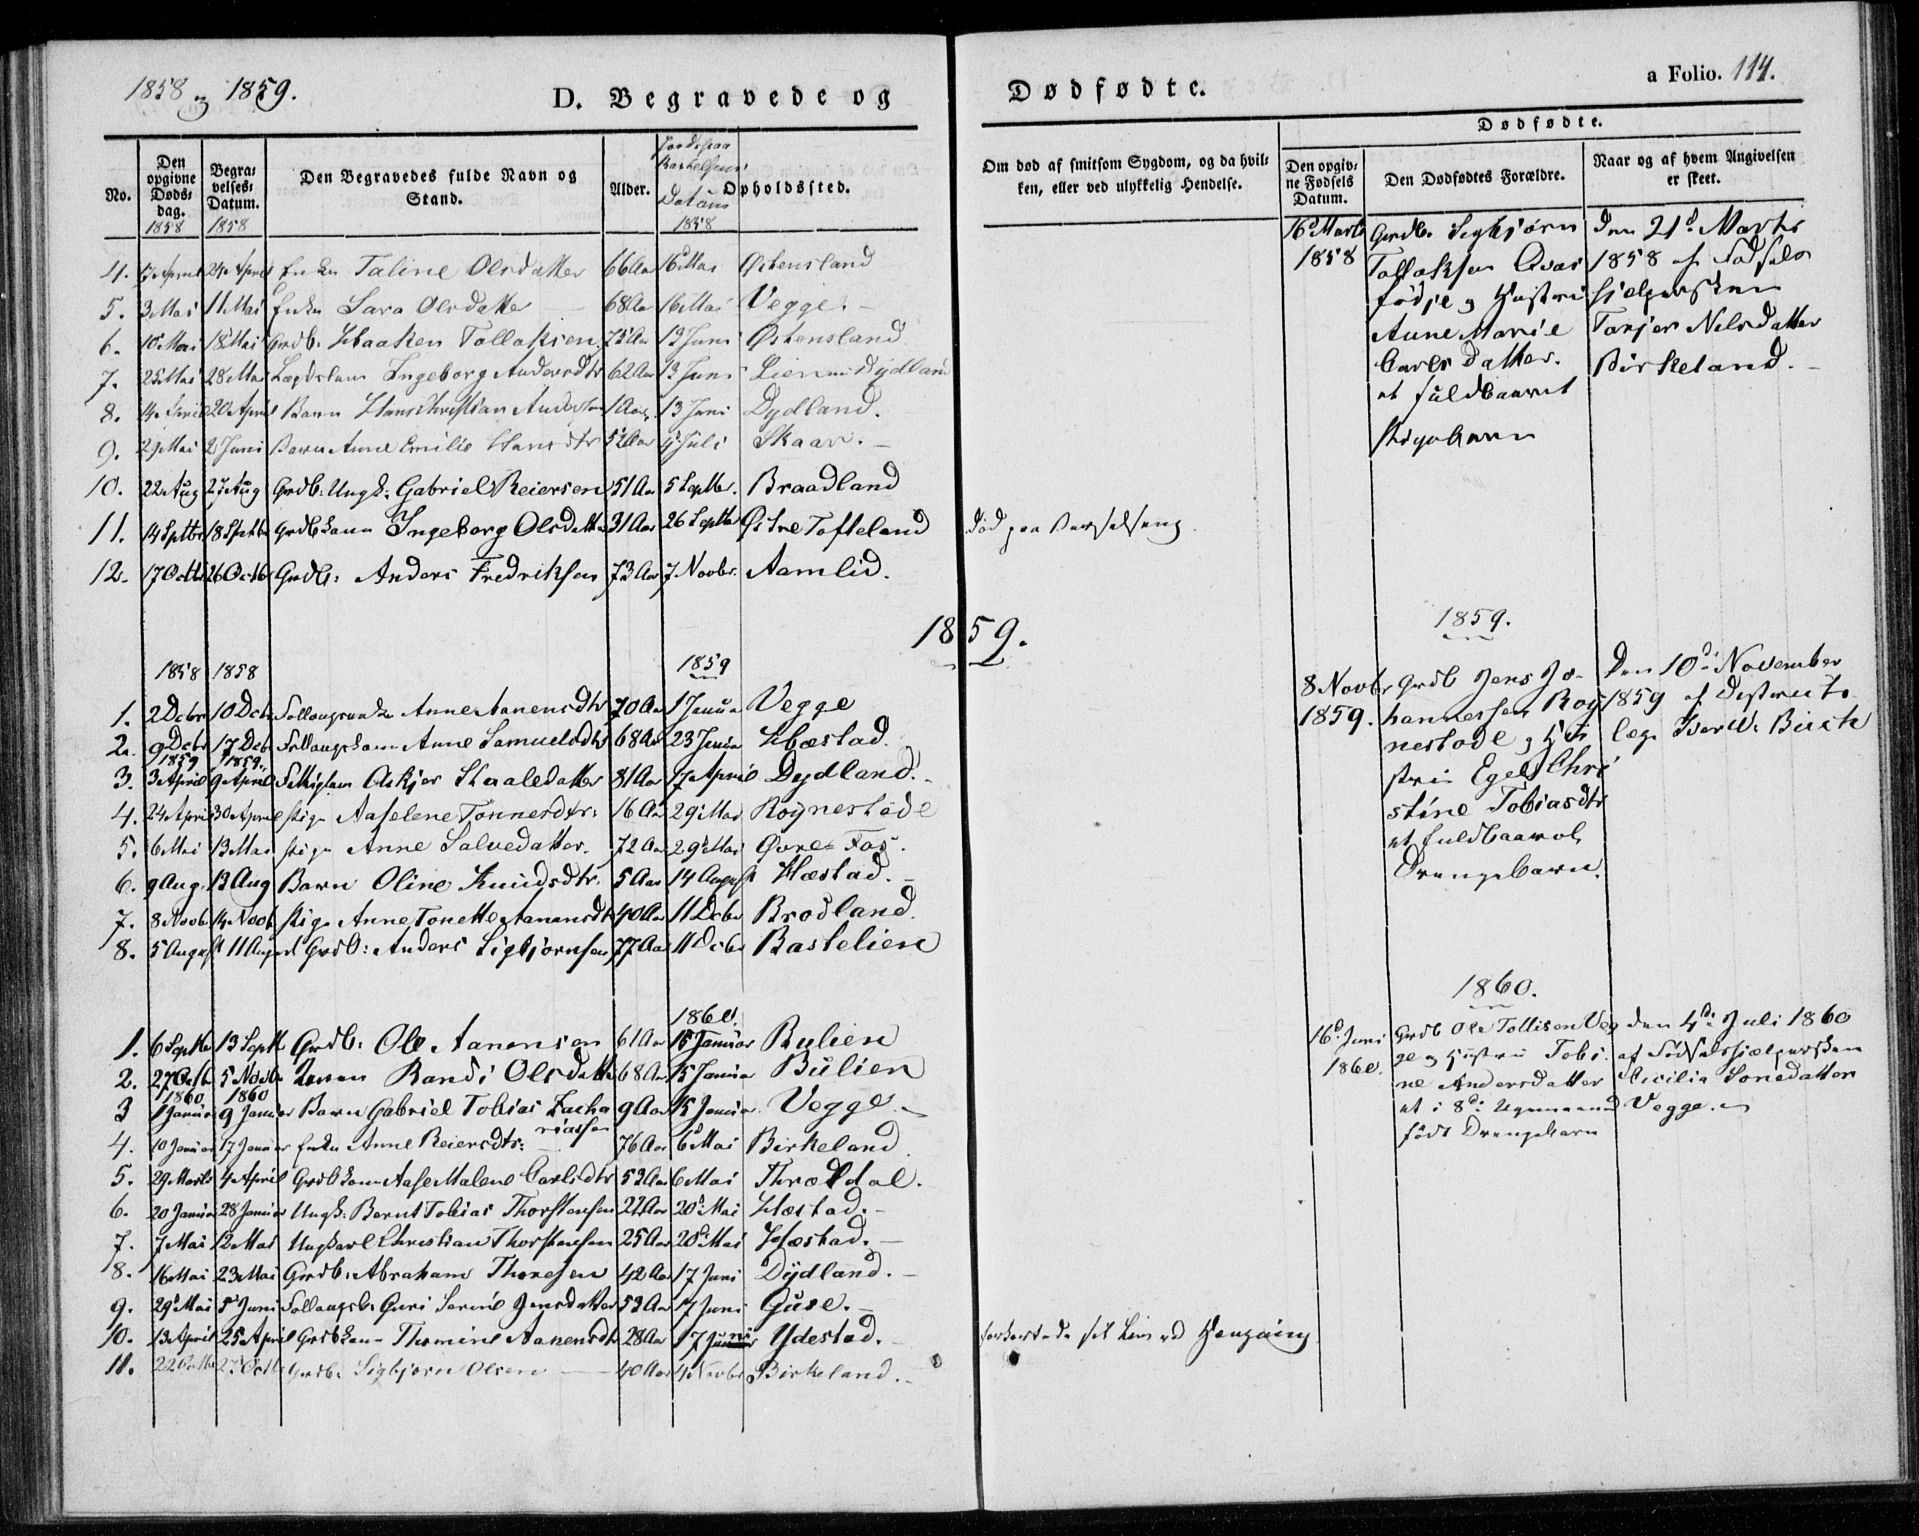 1858 og 1859.
D. Begravede og
Dødfødte.
a Folio. 114.
No.
Den opgivne Døds-dag. 1858
Begra-velses-Datum. 1858
Den Begravedes fulde Navn og Stand.
Alder.
Jordspaa-kastelsens Datum 1858
Opholdssted.
Om død af smitsom Sygdom, og da hvil-
ken, eller ved ulykkelig Hendelse.
Dødfødte.
Den opgiv-ne Fødsels Datum.
Den Dødfødtes Forældre.
Naar og af hvem Angivelsen er skeet.
4. April 24 April Enke Taline Olsdatter 66 Aar 16 Mai Østensland
5. 3 Mai 11 Mai Enke Sara Olsdatter 68 Aar 16 Mai Vegge.
6. 10 Mai 18 Mai Grdb. Haaken Tollaksen 75 Aar 13 Juni Østensland
7. 25 Mai 28 Mai Lægdslem Ingeborg Andersdtr 62 Aar 13 Juni Lien Dydland
8. 14 April 20 April Barn Hans Christian Andersen 1 Aar 13 Juni Dydland.
9. 29 Mai 2 Juni Barn Anne Emilie Hansdtr Aar 4 Juli Skaar.
10. 22 Aug 27 Aug Grdb: Ungk: Gabriel Reiersen 51 Aar 5 Septbr. Braadland
11. 14 Septbr 18 Septbr Grdbkone Ingeborg Olsdatter 31 Aar 26 Septbr Østre Tofteland død paa Barselseng.
12. 17 Octb 26 Octb Grdb: Anders Fredriksen 73 Aar 7 Novbr. Aamlid.
16d Marts
1858
Grdb. Sigbjørn
Tollaksen Aas
fødje og Hustru
Anne Marie
Carlsdatter.
et fuldbaaret
Pigebarn
Den 21d Marts
1858 af Fødsels
hjelpersken
Torjer Nilsdatter
Birkeland.
1859.
1858 1858 1859
1. 2 Dcbr 10 Dcbr Anne Aanensdtr 70 Aar 1 Janua Vegge
2. 9 Dcbr 17 Dcb Anne Samuelsdtr 68 Aar 23 Janua Hæstad.
1859 1859
3. 3 April 9 April Askjer Staalesdatter 81 Aar 17 April Dydland.
4. 24 April 30 April Pige Aaselene Tønnesdtr: 16 Aar 29 Mai Røynestøde
5. 6 Mai 13 Mai Pige Anne Salvedatter. 72 Aar 29 Mai Øvre Fos.
6. 9 Aug. 13 Aug Barn Oline Knudsdtr. 5 Aar 14 August Hæstad.
7. 8 Novb 14 Novb Pige Anne Tonette Aanensdtr 40 Aar 11 Dcbr Brodland.
8. 5 August 11 August Grdb: Anders Sigbjørnsen 77 Aar 11 Dcbr Bastelien
1859.
8 Novbr
1859.
Grdb Jens Jo-
hannessen Røy
nestøde og Hu
stru Egel Chri
stine Tobiasdtr
et fuldbaaret
Drengebarn.
Den 10de November
1859 af Distrikts
læge Birch
1860.
1. 6 Septbr 13 Septb Grdb: Ole Aanensen 61 Aar 15 Januar Bulien
2. 27 Octb 5 Novb Randi Olsdatter 68 Aar 15 Januar Bulien
1860. 1860
3 1 Januar 9 Januar Barn Gabriel Tobias Zacha
riassen 9 Aar 15 Januar Vegge.
4. 10 Januar 17 Januar Enke Anne Reiersdtr: 76 Aar 6 Mai Birkeland.
5. 29 Marts 4 April Grdbkone Aase Malene Carlsdtr 53 Aar 6 Mai Thrældal.
6. 20 Januar 28 Januar Ungk: Bernt Tobias Thorstensen 22 Aar 20 Mai Hæstad.
7. 7 Mai 12 Mai Ungkarl Christian Thorstensen 25 Aar 20 Mai Hæstad.
8. 16 Mai 23 Mai Grdb: Abraham Thoresen 42 Aar 17 Juni Dydland.
9. 29 Mai 5 Juni Guri Serine Jensdatter 53 Aar 17 Juni Guse.
10. 13 April 25 April Grdbkone Thomine Aanensdtr 28 Aar 17 Juni Ydestad. forkortede sit Liv ved Hengning
11. 22 Octb 27 Octb Grdb: Sigbjørn Olsen 40 Aar 4 Novbr Birkeland.
1860.
16d Juni
1860.
Grdb Ole Tollisen Veg
ge og Hustru Tobi
ne Andersdatter
et i 8de Ugemaaned
født Drengebarn
Den 4de Juli 1860
af Fødselshjælpersken
Cicilia Sonedatter
Vegge.